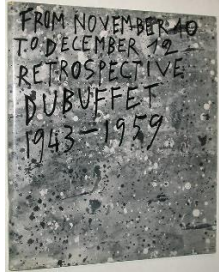 FROM NOVEMBER 10
TO DECEMBER 12
RETROSPECTIVE
DUBUFFET
1943-1959